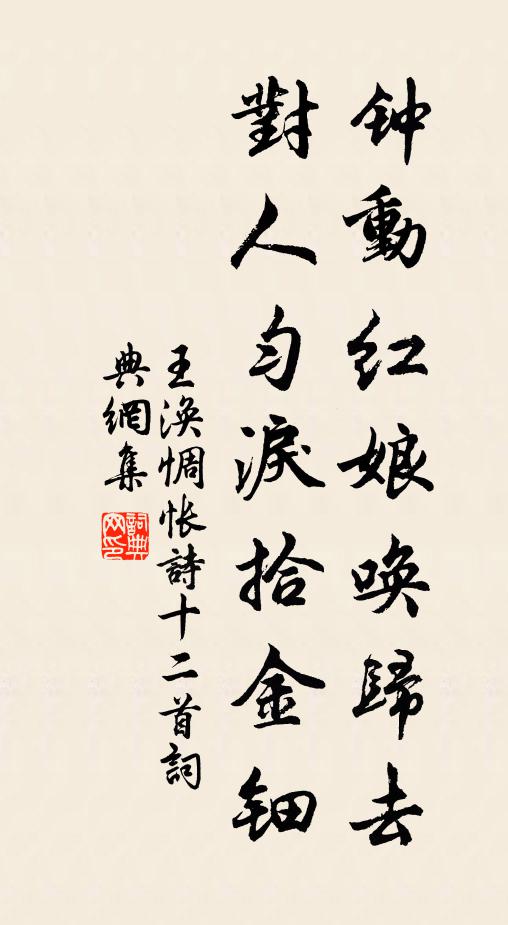 钟動红娘唤歸去
對人匀淚拾金钿
王涣惆怅詩十二首詞
典網集
詞典
网印